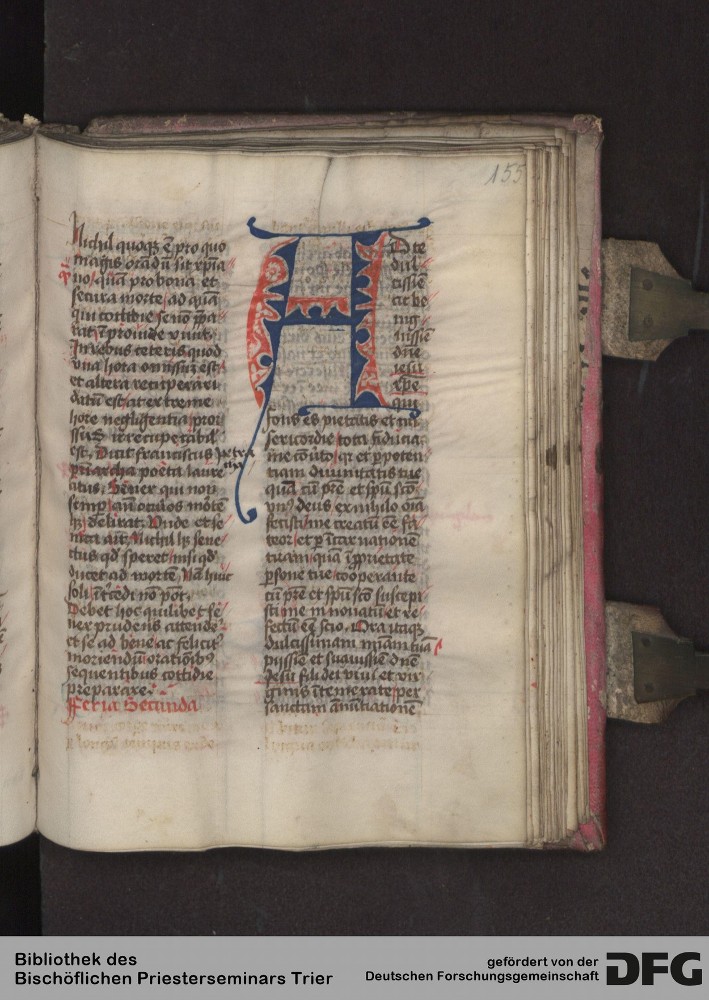 155
Nichil quoqȝ ē pro quo
magis orandū sit xp̄ia
no / quā pro bona et
secura morte / ad quā
qui cottidie se nō p̄pa
rat / īproinde viuit
In rebus ceteris quod
vna hora omissū est
et altera recuperari
datū est / at extreme
hore negligentia pror
ssus irrecuperabił
est, Dicit franciscus petra
priarcha poeta laure
atus, Senex qui non
semp añ oculos mortē
hȝ delirat, Unde et se
neca ait, Nichil hȝ sene
ctus qd̄ speret / nisi qd̄
ducet ad mortē, Nā huic
soli īt̄cedi nō pōt,
Debet hoc quilibet se
nex prudens attende
et se ad bene ac felicit̾
moriendū / oratiōibȝ
sequentibus cottidie
preparare
Feria Secunda
A
D te
dul
cissie
ac be
nig
nissie
dn̄e
iesu
xp̄e
qui
fons es pietatis et mi
sericordie / tota fiducia
me cōuto / qr et p potē
tiam diuinitatis tue
quā cū pr̄e et sp̄u sc̄o
vn⁹ deus ex nihilo oīa
fecisti / me creatū eē fa
teor / et p īcarnationē
tuam / quā ī p̄prietate
p̄sone tue / cooperante
cū pr̄e et sp̄u sc̄o suscepi
sti / me innouatū et re
fectū eē scio, Ora itaqȝ
dulcissimam m̄iam tuā
piissie et suauissie dn̄e
Jesu fili dei viui et vir
ginis ītemerate / per
sanctam annūtiationē
Bibliothek des
Bischöflichen Priesterseminars Trier
gefördert von der
Deutschen Forschungsgemeinschaft
DFG